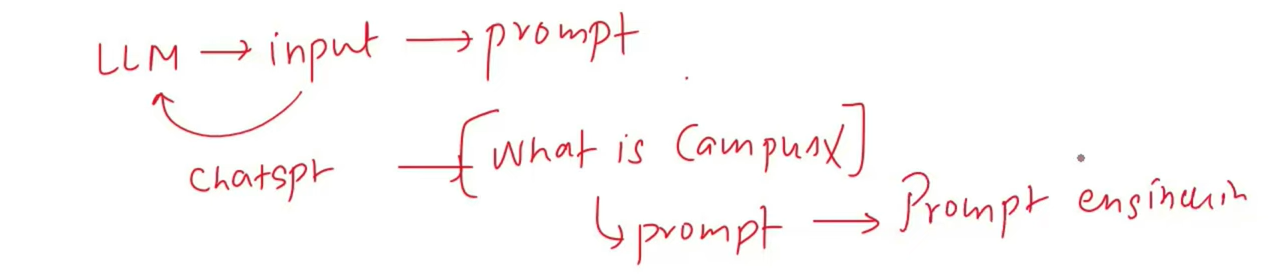 LLM → input → prompt
Chatgpt — [What is CampusX]
↳ prompt → Prompt engineerin